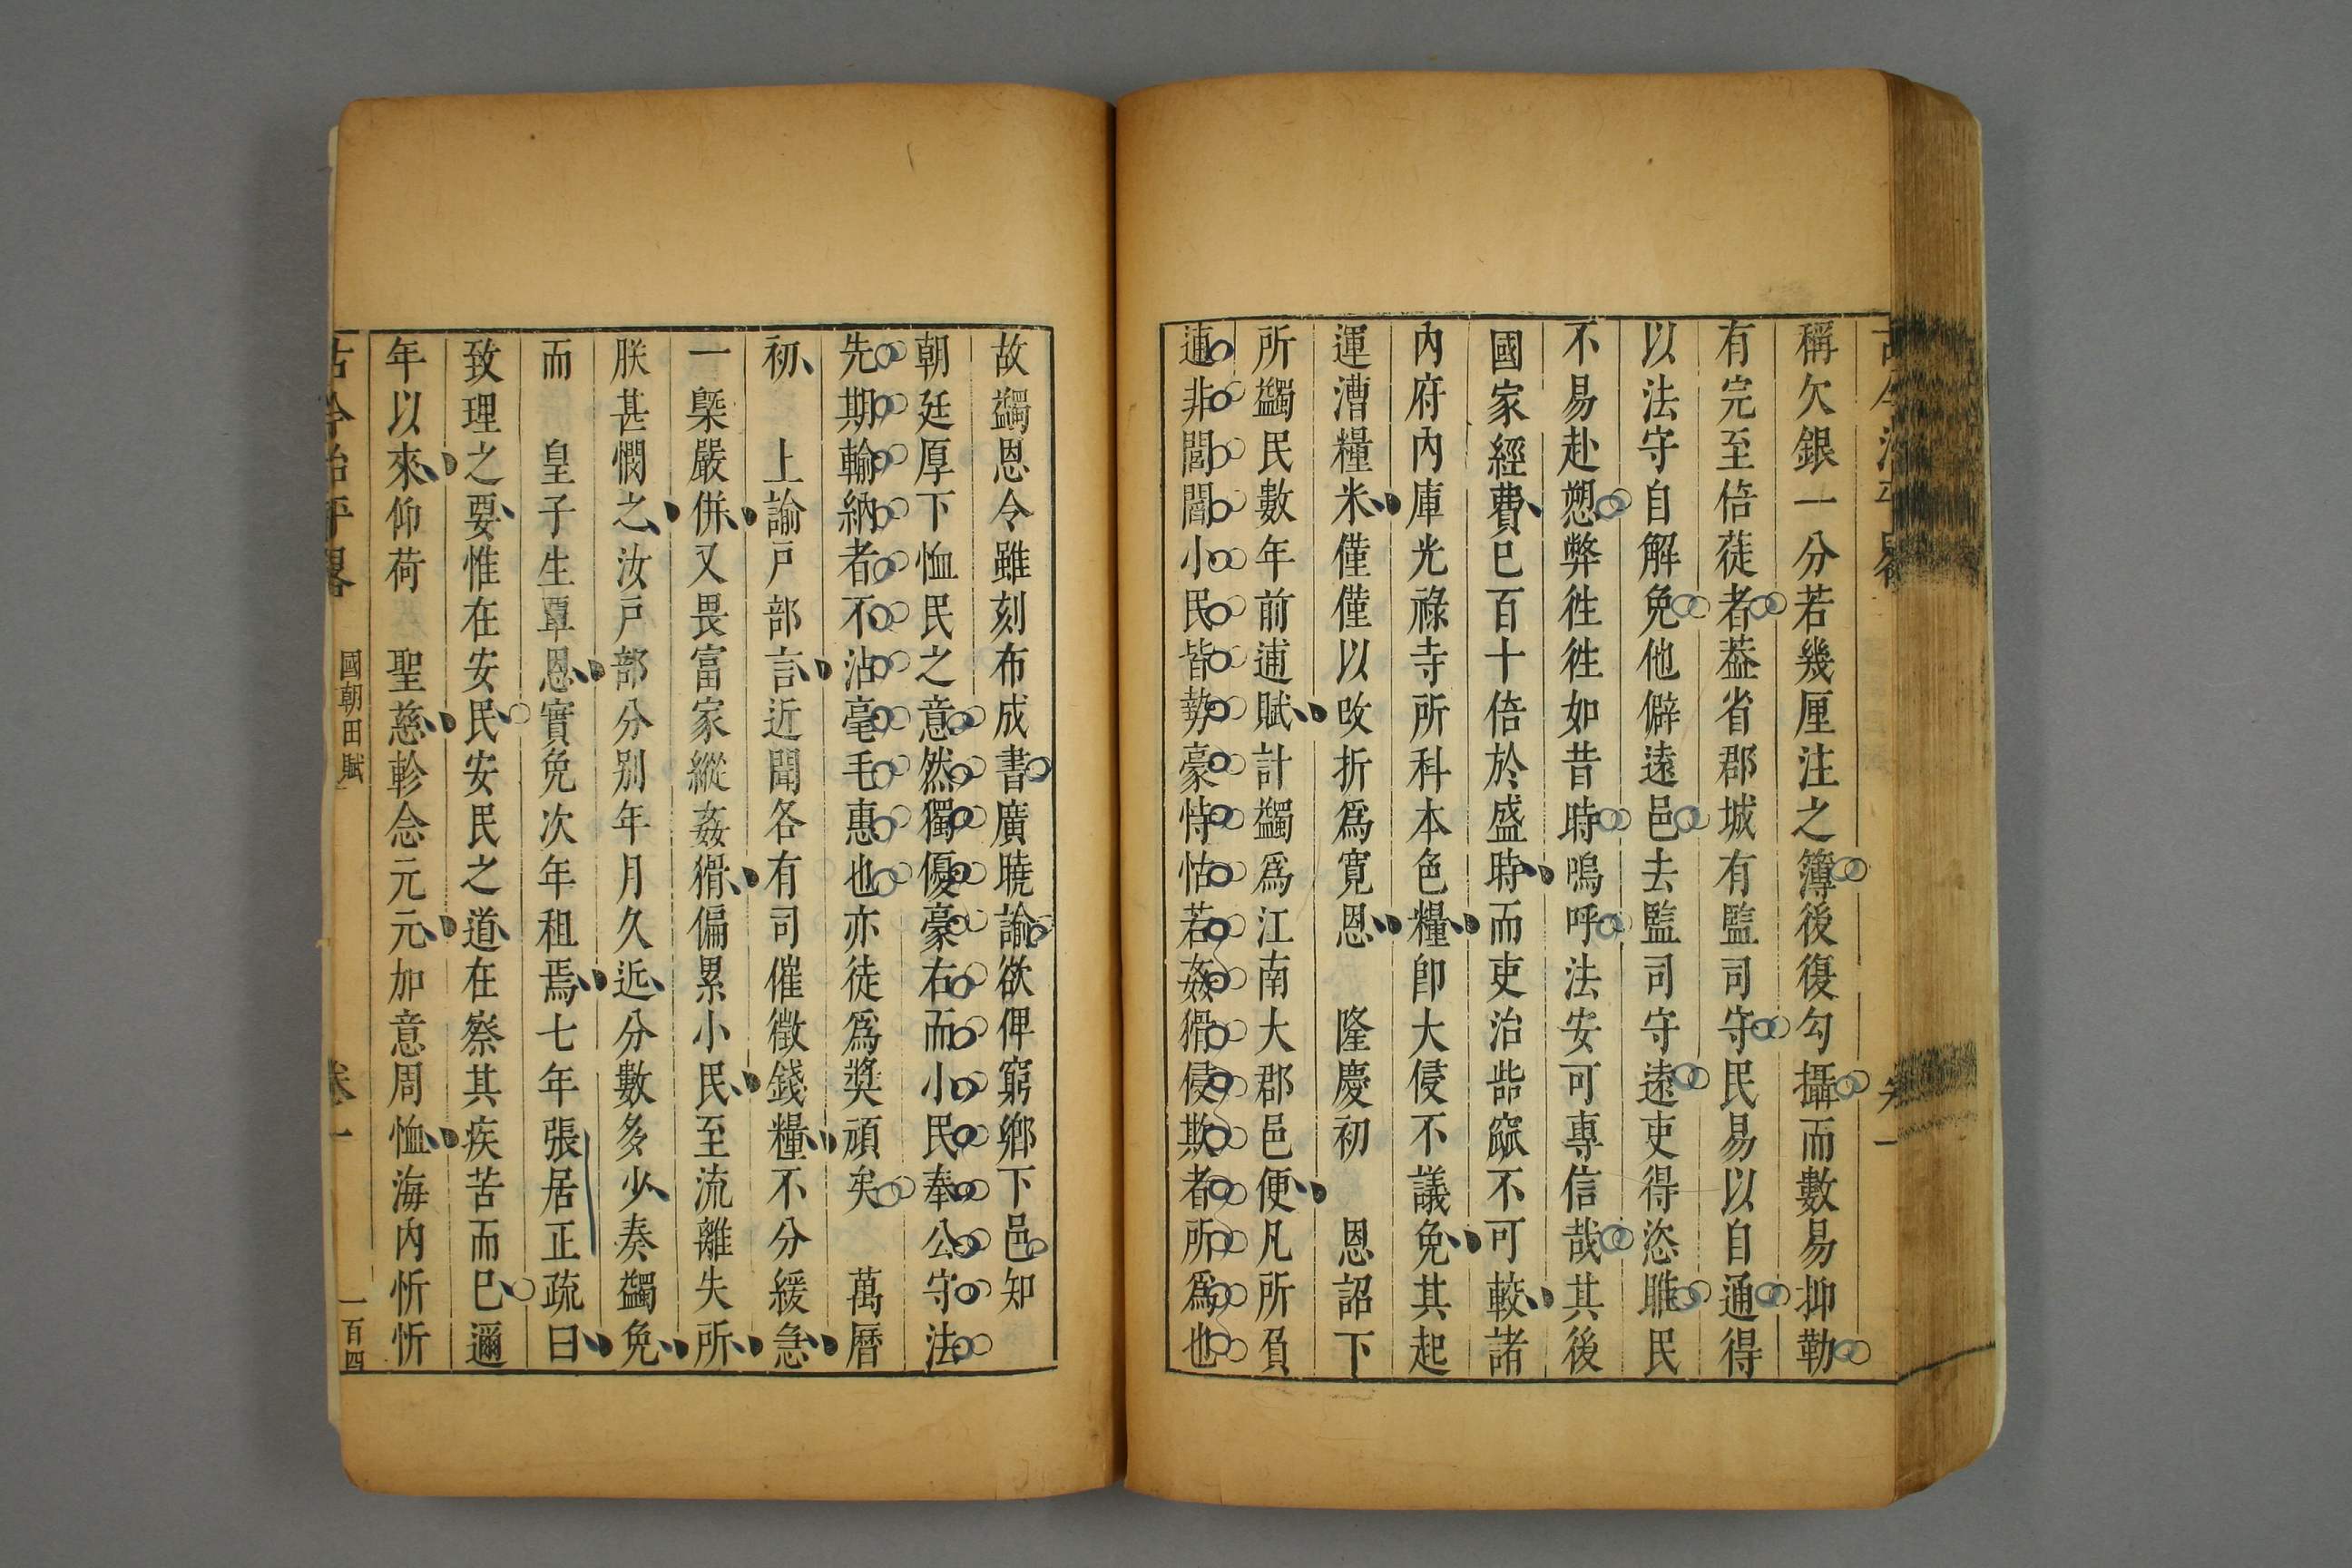 古今治平畧
卷一
稱欠銀一分若幾厘注之簿後復勾攝而數易抑勒
有完至倍蓰者葢省郡城有監司守民易以自通得
以法守自解免他僻遠邑去監司守遠吏得恣睢民
不易赴愬弊徃徃如昔時嗚呼法安可專信哉其後
國家經費已百十倍於盛時而吏治呰窳不可較諸
內府內庫光祿寺所科本色糧卽大侵不議免其起
運漕糧米僅僅以改折爲寛恩 隆慶初 恩詔下
所蠲民數年前逋賦計蠲爲江南大郡邑便凡所負
逋非閭閻小民皆勢豪恃怙若姦猾侵欺者所爲也
故蠲恩令雖刻布成書廣曉諭欲俾窮鄉下邑知
朝廷厚下恤民之意然獨優豪右而小民奉公守法
先期輸納者不沾毫毛惠也亦徒爲奬頑矣 萬曆
初 上諭戶部言近聞各有司催徵錢糧不分緩急
一槩嚴併又畏富家縱姦猾偏累小民至流離失所
朕甚憫之汝戶部分別年月久近分數多少奏蠲免
而 皇子生覃恩實免次年租焉七年張居正疏曰
致理之要惟在安民安民之道在察其疾苦而已邇
年以來仰荷 聖慈軫念元元加意周恤海內忻忻
古今治平畧
國朝田賦
卷一
一百四